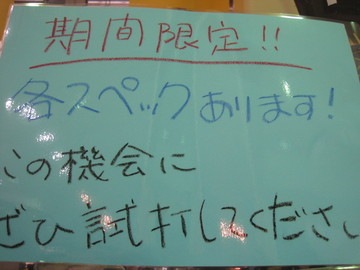 期間限定!!
各スペックあります!
この機会に
ぜひ試打してください